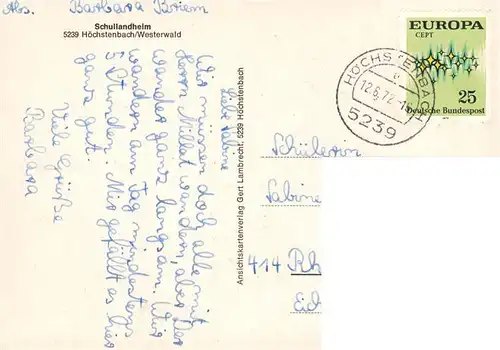 Abs. Barbara Briem
Schullandheim
5239 Höchstenbach/Westerwald
Liebe Sabine
Wir müssen doch alle mit
Herrn Müller wandern, aber der
wandert ganz langsam. Wir
wandern am Tag mindestens
5 Stunden. Mir gefällt es hier
ganz gut.
Viele Grüße
Barbara
Ansichtskartenverlag Gert Lambrecht, 5239 Höchstenbach
EUROPA
CEPT
25
Deutsche Bundespost
HÖCHSTENBACH
12.6.72
5239
Schülerin
Sabine
414 Rh
Eic